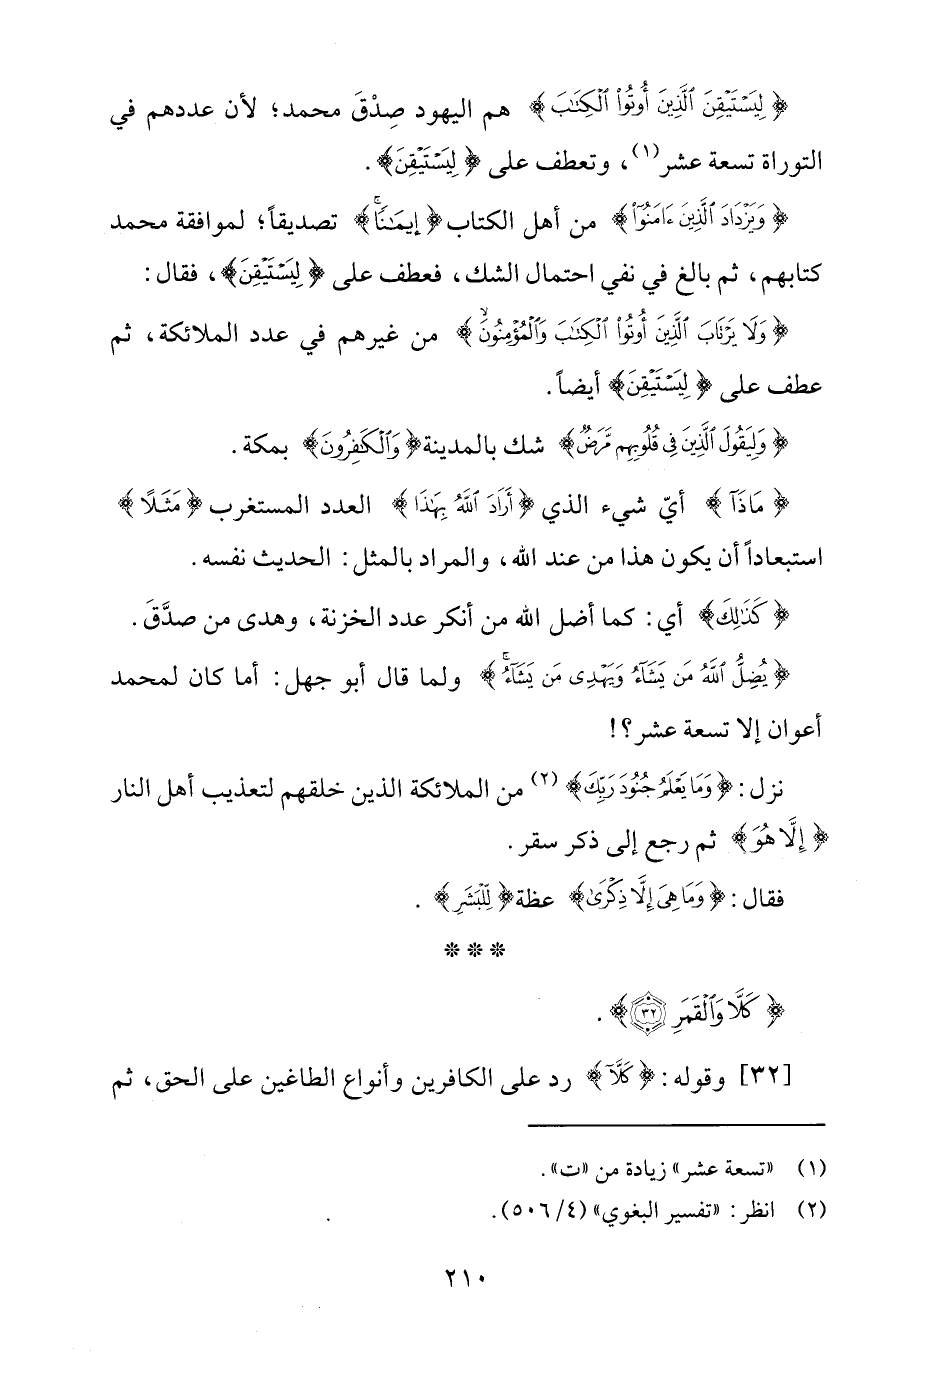 ﴿ لِيَسْتَيْقِنَ ٱلَّذِينَ أُوتُوا۟ ٱلْكِتَـٰبَ ﴾ هم اليهود صِدْقَ محمد؛ لأن عددهم في
التوراة تسعة عشر(١)، وتعطف على ﴿ لِيَسْتَيْقِنَ﴾.
﴿ وَيَزْدَادَ ٱلَّذِينَ ءَامَنُوٓا۟ ﴾ من أهل الكتاب ﴿ إِيمَـٰنًا ۙ﴾ تصديقاً؛ لموافقة محمد
كتابهم، ثم بالغ في نفي احتمال الشك، فعطف على ﴿ لِيَسْتَيْقِنَ﴾، فقال:
﴿ وَلَا يَرْتَابَ ٱلَّذِينَ أُوتُوا۟ ٱلْكِتَـٰبَ وَٱلْمُؤْمِنُونَ ۙ﴾ من غيرهم في عدد الملائكة، ثم
عطف على ﴿ لِيَسْتَيْقِنَ﴾ أيضاً.
﴿ وَلِيَقُولَ ٱلَّذِينَ فِى قُلُوبِهِم مَّرَضٌ ﴾ شك بالمدينة ﴿وَٱلْكَـٰفِرُونَ ﴾ بمكة.
﴿ مَاذَآ ﴾ أيّ شيء الذي ﴿أَرَادَ ٱللَّهُ بِهَـٰذَا ﴾ العدد المستغرب ﴿مَثَلًا ﴾
استبعاداً أن يكون هذا من عند الله، والمراد بالمثل: الحديث نفسه.
﴿ كَذَٰلِكَ﴾ أي: كما أضل الله من أنكر عدد الخزنة، وهدى من صدَّقَ.
﴿ يُضِلُّ ٱللَّهُ مَن يَشَآءُ وَيَهْدِى مَن يَشَآءُ ۚ﴾ ولما قال أبو جهل: أما كان لمحمد
أعوان إلا تسعة عشر؟!
نزل: ﴿ وَمَا يَعْلَمُ جُنُودَ رَبِّكَ﴾(٢) من الملائكة الذين خلقهم لتعذيب أهل النار
﴿ إِلَّا هُوَ ﴾ ثم رجع إلى ذكر سقر.
فقال: ﴿ وَمَا هِىَ إِلَّا ذِكْرَىٰ﴾ عظة ﴿ لِلْبَشَرِ ﴾ .
* * *
﴿ كَلَّا وَٱلْقَمَرِ ٣٢﴾ .
[٣٢] وقوله: ﴿ كَلَّآ ﴾ رد على الكافرين وأنواع الطاغين على الحق، ثم
(١) «تسعة عشر» زيادة من «ت».
(٢) انظر: «تفسير البغوي» (٤/ ٥٠٦).
٢١٠